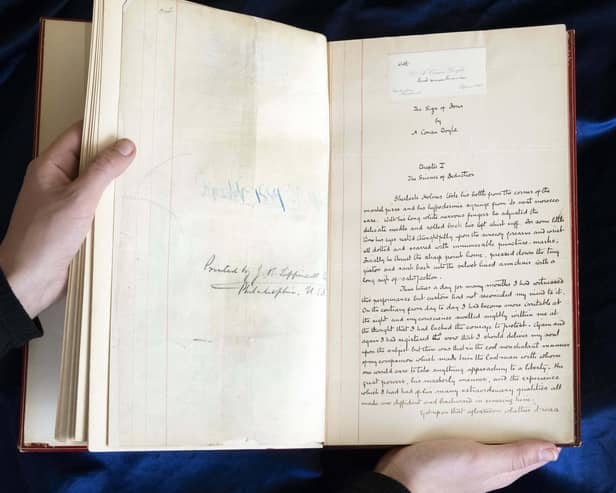 Printed by J. B. Lippincott
Philadelphia, U.S.A.
With
A. Conan Doyle
The Sign of Four
by
A Conan Doyle
Chapter I
The Science of Deduction
Sherlock Holmes took his bottle from the corner of the
mantel piece and his hypodermic syringe from its neat morocco
case. With his long white nervous fingers he adjusted the
delicate needle and rolled back his left shirt cuff. For some little
time his eyes rested thoughtfully upon the sinewy forearm and wrist
all dotted and scarred with innumerable puncture marks.
Finally he thrust the sharp point home, pressed down the tiny
piston and sank back into the velvet lined armchair with a
long sigh of satisfaction.
Three times a day for many months I had witnessed
this performance but custom had not reconciled my mind to it.
On the contrary from day to day I had become more irritable at
the sight and my conscience swelled nightly within me at
the thought that I had lacked the courage to protest. Again and
again I had registered the vow that I should deliver my soul
upon the subject but there was that in the cool nonchalant manner
of my companion which made him the last man with whom
one would care to take anything approaching to a liberty. His
great powers, his masterly manner, and the experience
which I had had of his many extraordinary qualities all
made me diffident and backward in crossing him.
Yet upon that afternoon whether it was